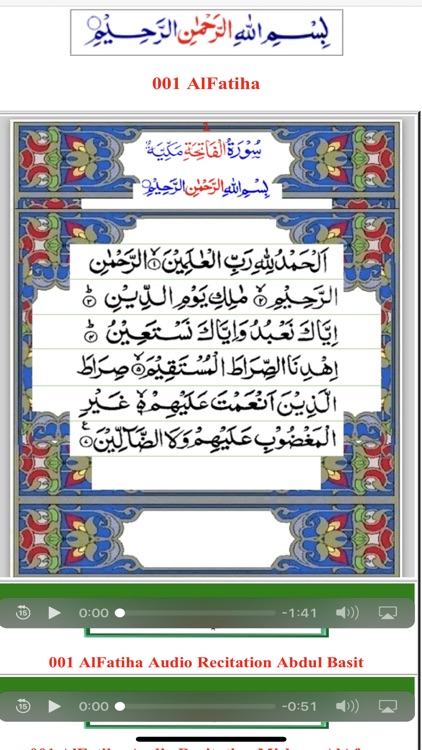 بِسْمِ اللهِ الرَّحْمٰنِ الرَّحِيْمِ
001 AlFatiha
سُوْرَةُ الْفَاتِحَةِ مَكِّيَّةٌ
بِسْمِ اللهِ الرَّحْمٰنِ الرَّحِيْمِ
اَلْحَمْدُ لِلّٰهِ رَبِّ الْعٰلَمِيْنَ ۙ‏﴿۱﴾ الرَّحْمٰنِ
الرَّحِيْمِ ۙ‏﴿۲﴾ مٰلِكِ يَوْمِ الدِّيْنِ ؕ‏﴿۳﴾
اِيَّاكَ نَعْبُدُ وَاِيَّاكَ نَسْتَعِيْنُ ؕ‏﴿۴﴾
اِهْدِنَا الصِّرَاطَ الْمُسْتَقِيْمَ ۙ‏﴿۵﴾ صِرَاطَ
الَّذِيْنَ اَنْعَمْتَ عَلَيْهِمْ ۙ۬‏﴿۶﴾ غَيْرِ
الْمَغْضُوْبِ عَلَيْهِمْ وَلَا الضَّآلِّيْنَ ﴿۷﴾
15 0:00 -1:41
001 AlFatiha Audio Recitation Abdul Basit
15 0:00 -0:51